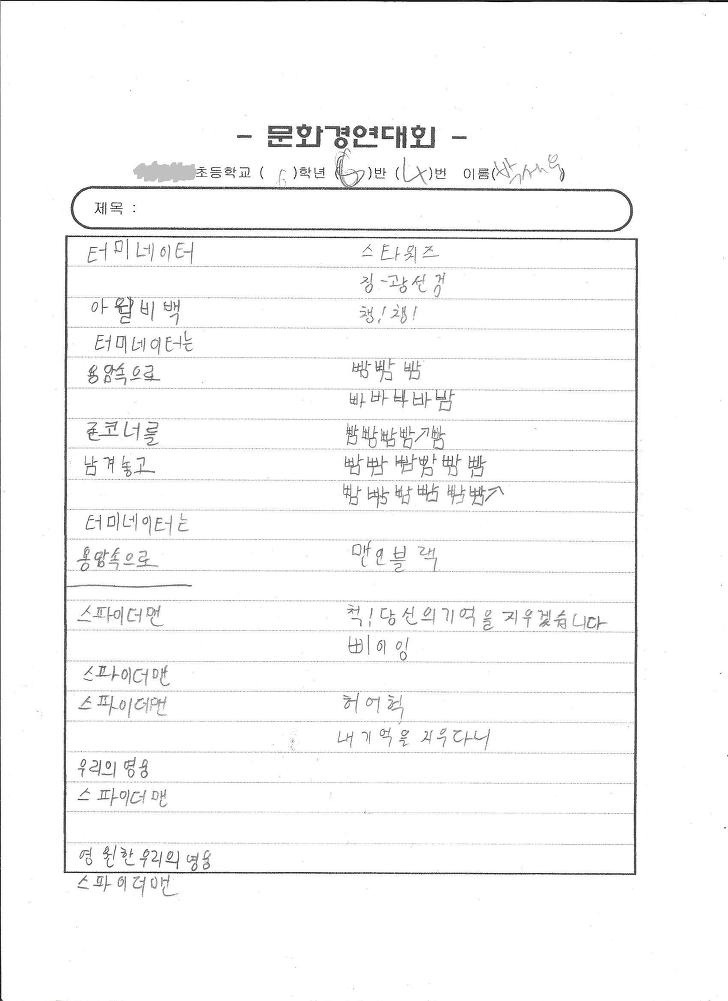 - 문화경연대회 -
초등학교 ( 6 )학년 ( 6 )반 ( 4 )번 이름( )
제목 :
터미네이터
아 윌 비 백
터미네이터는
용암속으로
존코너를
남겨놓고
터미네이터는
용암속으로
스파이더맨
스파이더맨
스파이더맨
우리의 영웅
스파이더맨
영원한 우리의 영웅
스파이더맨
스타워즈
징-광선검
챙! 챙!
빰빰 빰
빠바바바밤
빰빰빰빰↗빰
빰빰 빰빰 빰 빰
빰 빰 빰 빰 빰 빰↗
맨인블랙
척! 당신의 기억을 지우겠습니다
삐이잉
허어헉
내 기억을 지우다니